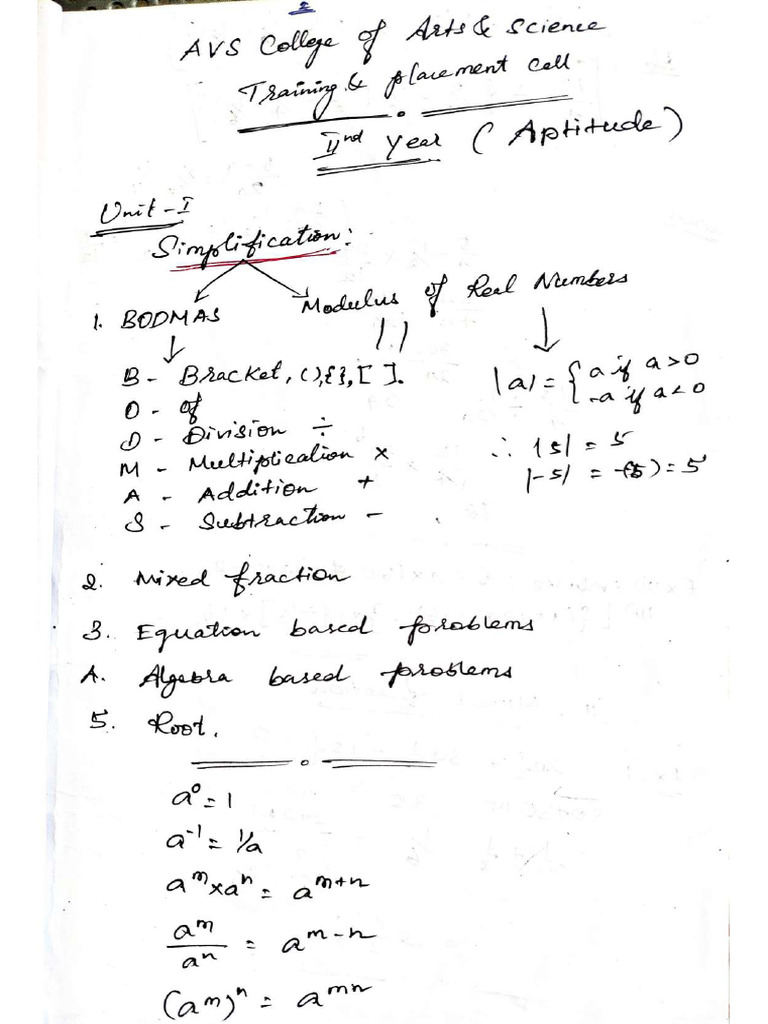 2
AVS College of Arts & Science
Training & placement cell
IInd Year (Aptitude)
Unit-I
Simplification:
1. BODMAS
Modulus of Real Numbers
|.|
B - Bracket, (), {}, [ ].
O - of
D - Division ÷
M - Multiplication ×
A - Addition +
S - Subtraction -
|a| = { a if a>0
-a if a<0
∴ |5| = 5
|-5| = -(-5) = 5
2. Mixed fraction
3. Equation based problems
4. Algebra based problems
5. Root.
a⁰ = 1
a⁻¹ = 1/a
aᵐ × aⁿ = aᵐ⁺ⁿ
aᵐ/aⁿ = aᵐ⁻ⁿ
(aᵐ)ⁿ = aᵐⁿ